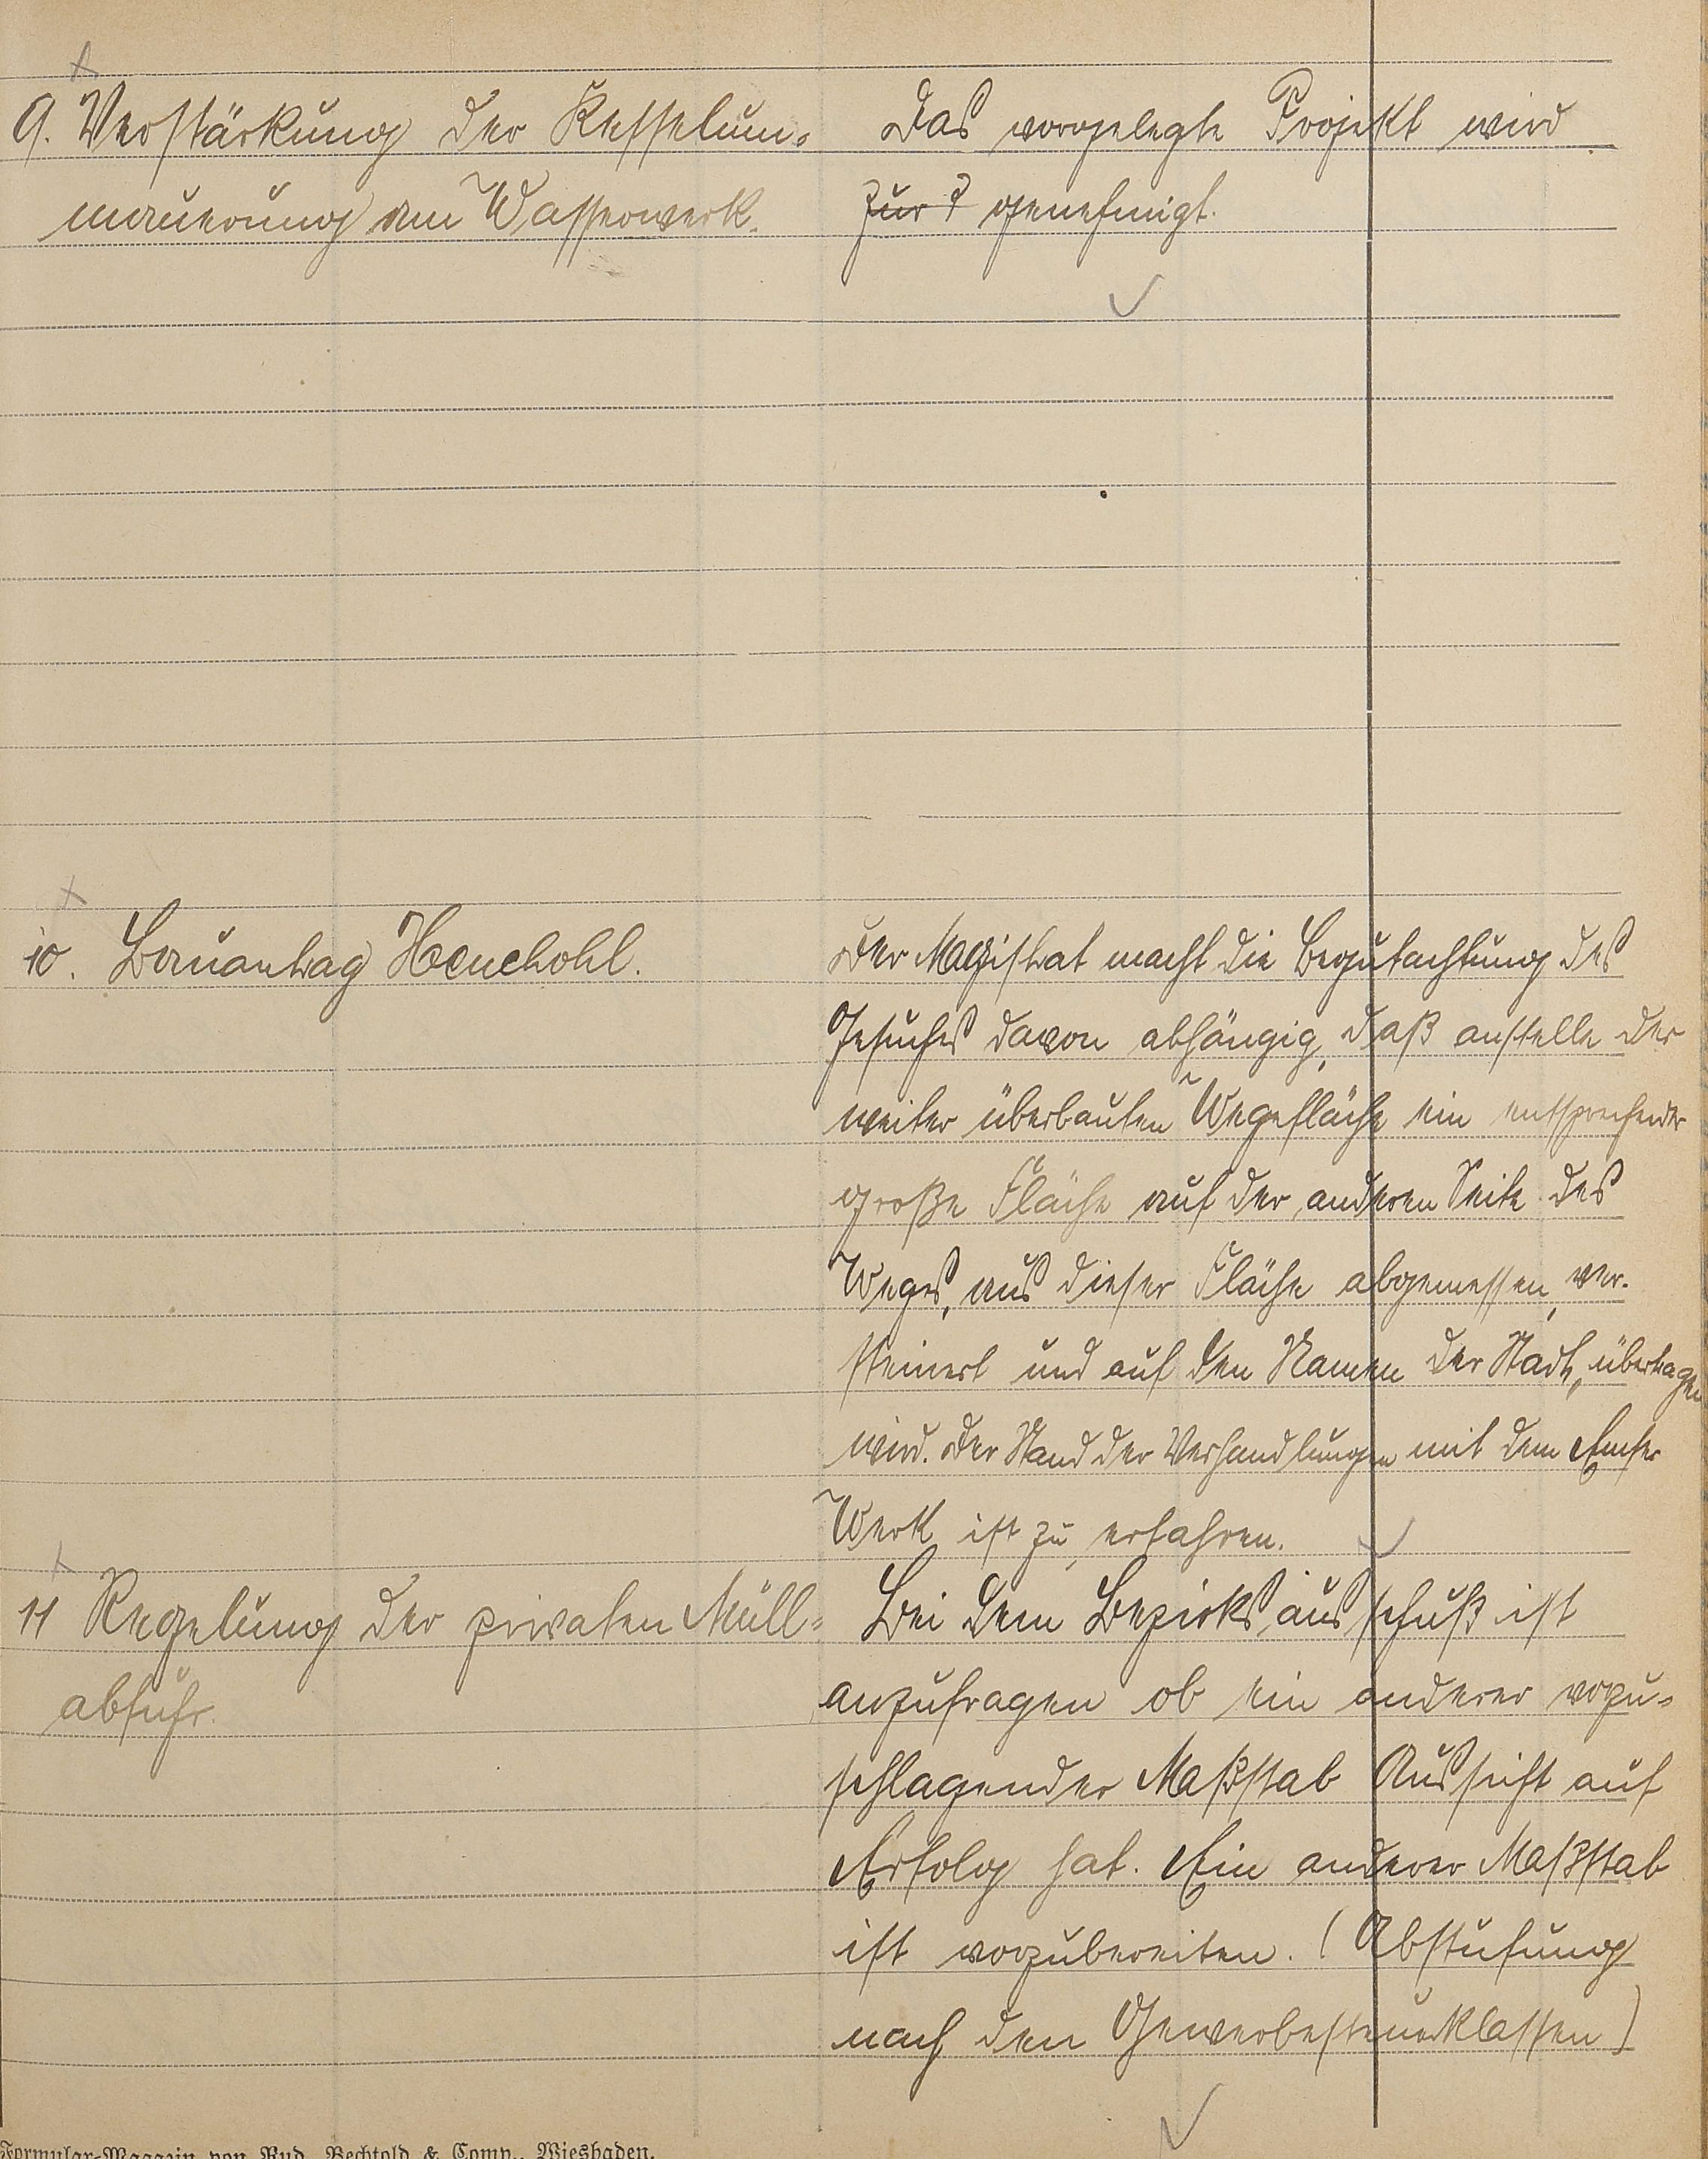 9. Verstärkung der Kesselum-
mauerung am Wasserwerk.
Das vorgelegte Projekt wird
zur ? genehmigt.
10. Bauantrag Henchohl.
Der Magistrat macht die Begutachtung des
Gesuches davon abhängig, daß anstelle der
weiter überbauten Wegefläche ein entsprechender
große Fläche auf der anderen Seite des
Weges, aus dieser Fläche abgemessen, ver-
steinert und auf den Namen der Stadt, übertragen
wird. Der Stand der Verhandlungen mit dem Emser
Werk ist zu erfahren.
11 Regelung der privaten Müll-
abfuhr.
Bei dem Bezirksausschuß ist
anzufragen ob ein anderer vorzu-
schlagender Maßstab Aussicht auf
Erfolg hat. Ein anderer Maßstab
ist vorzubereiten. (Abstufung
nach den Gewerbesteuerklassen)
Formular-Magazin von Rud. Bechtold & Comp., Wiesbaden.